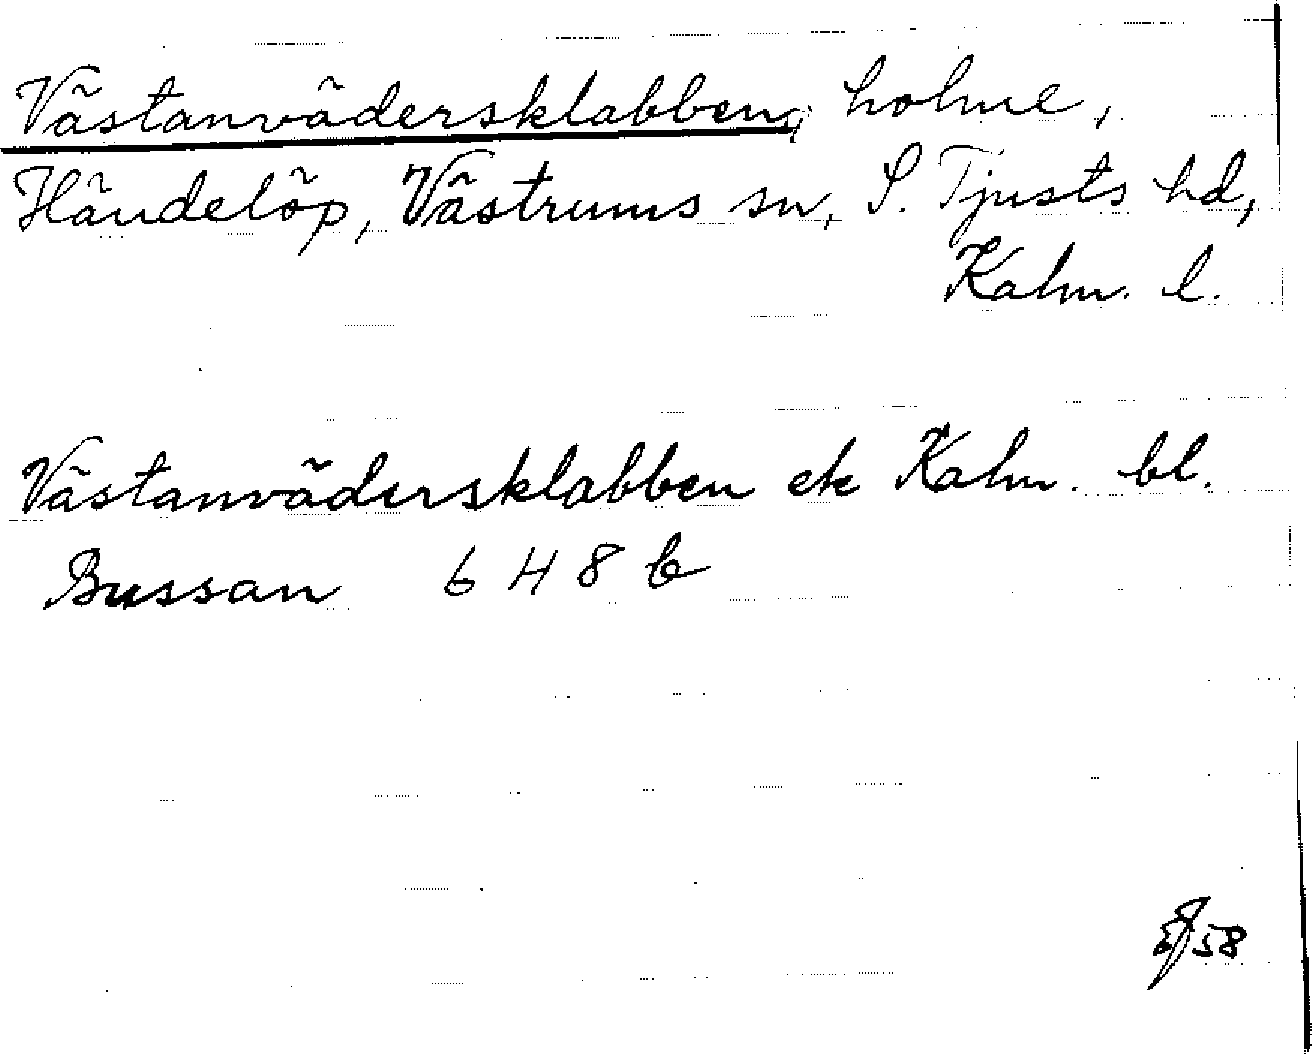 Västanvädersklabben, holme,
Händelöp, Västrums sn, S. Tjusts hd,
Kalm. l.
Västanvädersklabben ek Kalm. bl.
Bussan 6 H 8 b
58